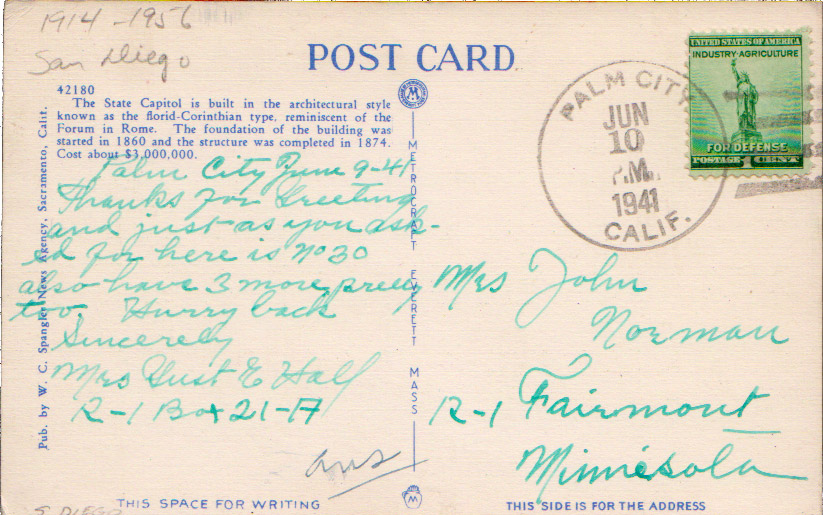 1914-1956
San Diego
POST CARD
42180
The State Capitol is built in the architectural style
known as the florid-Corinthian type, reminiscent of the
Forum in Rome. The foundation of the building was
started in 1860 and the structure was completed in 1874.
Cost about $3,000,000.
Palm City June 9-41
Thanks for Greeting
and just as you ask-
ed for here is No 30
also have 3 more pretty
too. Hurry back
Sincerely
Mrs Gust E Hall
R-1 Box 21-A
ans
THIS SPACE FOR WRITING
S. DIEGO
Pub. by W. C. Spangler News Agency, Sacramento, Calif.
METROCRAFT EVERETT MASS
PALM CITY
JUN
10
P.M.
1941
CALIF.
UNITED STATES OF AMERICA
INDUSTRY-AGRICULTURE
FOR DEFENSE
POSTAGE 1 CENT
Mrs John
Norman
R-1 Fairmont
Minnesota
THIS SIDE IS FOR THE ADDRESS